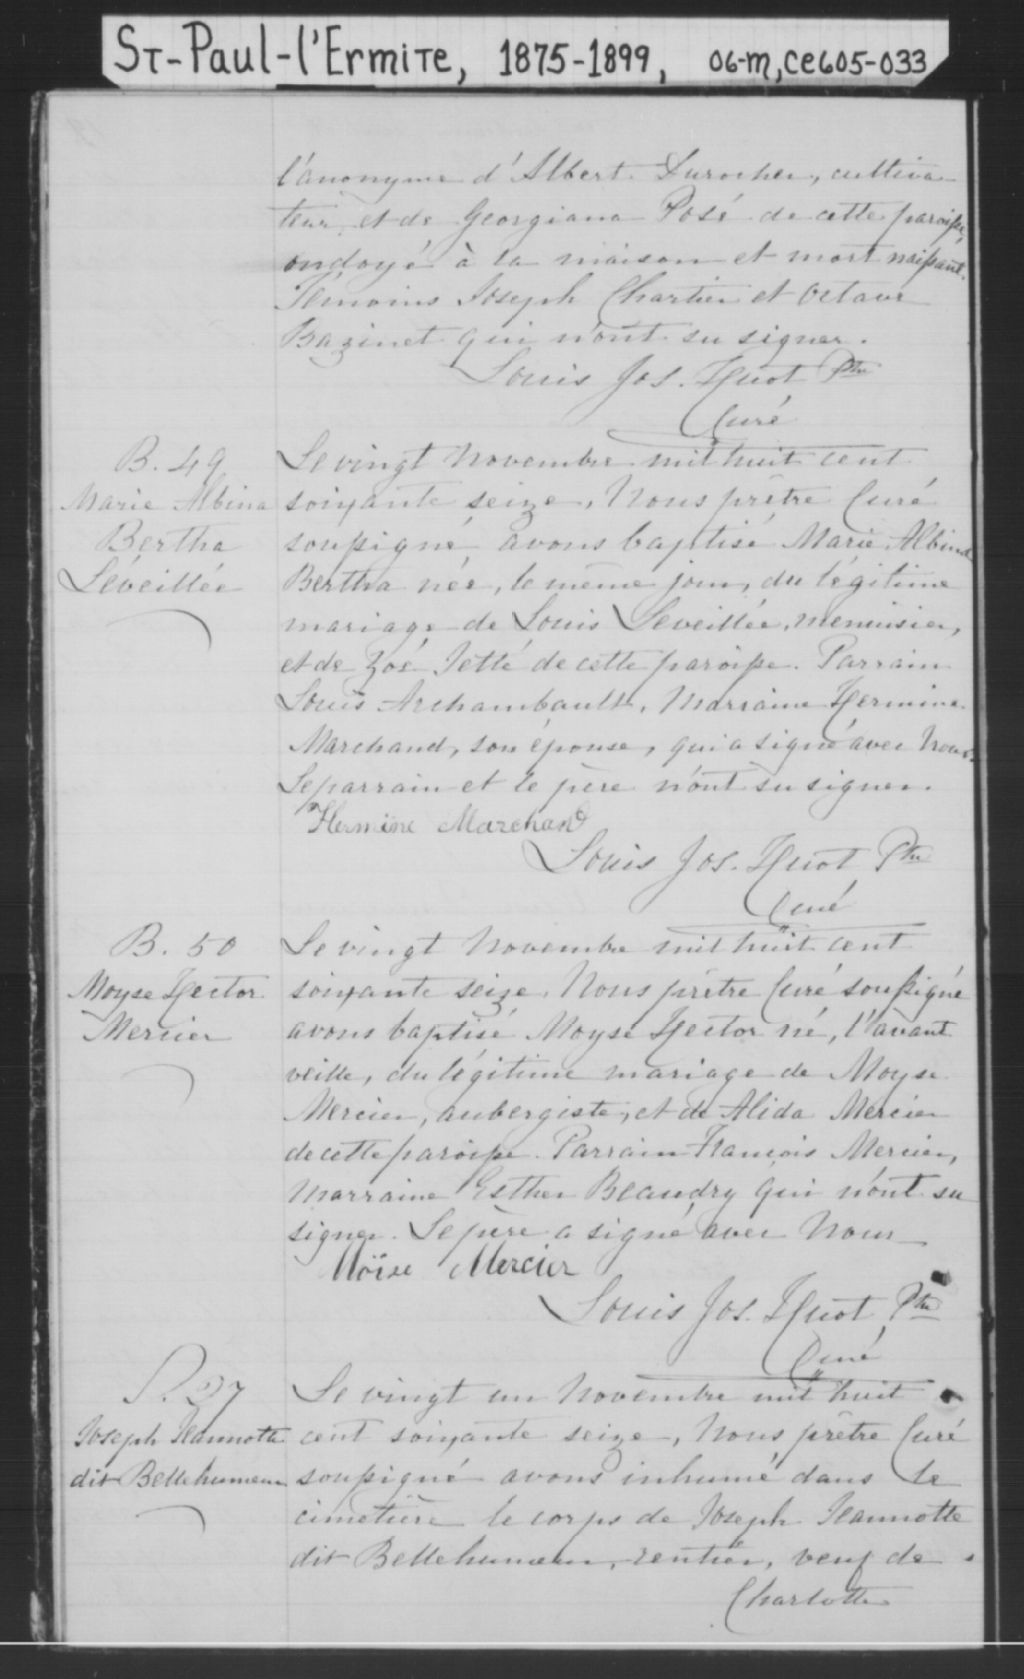 ST-Paul-l'Ermite, 1875-1899, 06-M, CE605-033
l'anonyme d'Albert Durocher, cultiva-
teur, et de Georgiana Posé de cette paroisse,
ondoyé à la maison et mort naissant.
Témoins Joseph Chartier et Octave
Bazinet qui n'ont su signer.
Louis Jos. Huot Ptre
Curé
B. 49
Marie Albina
Bertha
Léveillée
Le vingt Novembre mil huit cent
soixante seize, Nous prêtre Curé
soussigné avons baptisé Marie Albina
Bertha née, le même jour, du légitime
mariage de Louis Leveillée, menuisier,
et de Zoé Jetté de cette paroisse. Parrain
Louis Archambault, Marraine Hermine
Marchand, son épouse, qui a signé avec Nous.
Le parrain et le père n'ont su signer.
Hermine Marchand
Louis Jos. Huot Ptre
Curé
B. 50
Moyse Hector
Mercier
Le vingt Novembre mil huit cent
soixante seize, Nous prêtre Curé soussigné
avons baptisé Moyse Hector né, l'avant
veille, du légitime mariage de Moyse
Mercier, aubergiste, et de Alida Mercier
de cette paroisse. Parrain François Mercier,
Marraine Esther Beaudry qui n'ont su
signer. Le père a signé avec Nous
Moïse Mercier
Louis Jos. Huot Ptre
Curé
S. 27
Joseph Jeannotte
dit Bellehumeur
Le vingt un Novembre mil huit
cent soixante seize, Nous prêtre Curé
soussigné avons inhumé dans le
cimetière le corps de Joseph Jeannotte
dit Bellehumeur, rentier, veuf de
Charlotte